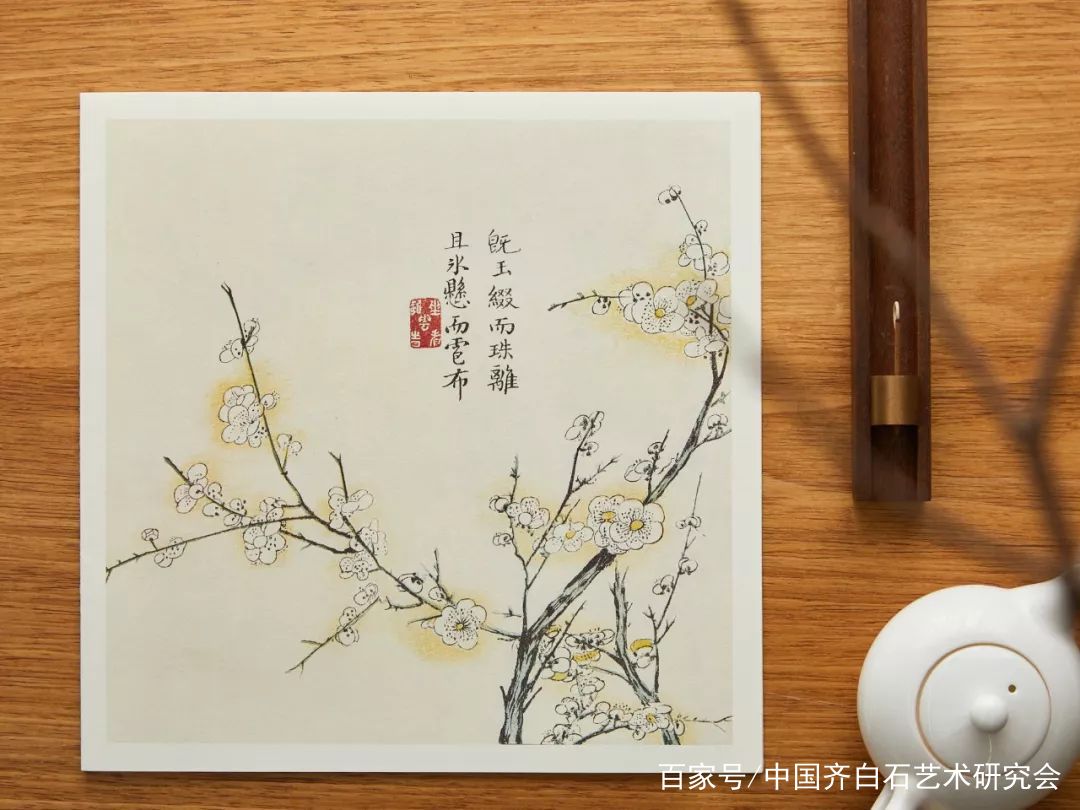 既玉綴而珠離
且氷懸而雹布
百家号/中国齐白石艺术研究会